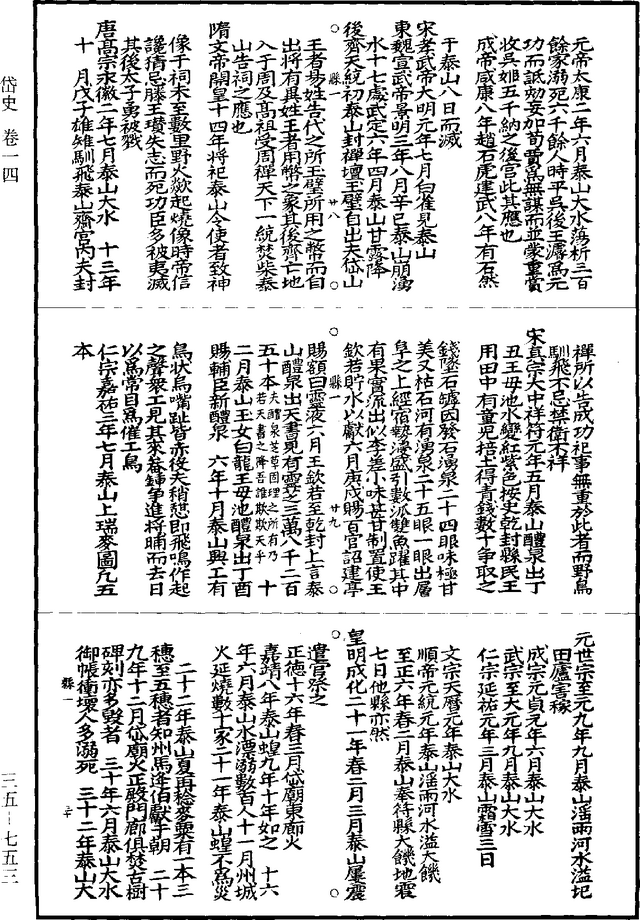 元帝太康二年六月泰山大水蕩析三百
餘家溺死六千餘人時平吳後王濬爲元
功而詆劾妄加荀賈爲無謀而並蒙重賞
收吳姬五千納之後宮此其應也
成帝咸康八年趙石虎建武八年有石然
于泰山八日而滅
宋孝武帝大明元年七月白隺見泰山
東魏宣武帝景明三年八月辛巳泰山崩湧
水十七處武定六年四月泰山甘露降
後齊天統初泰山封禪壇玉璧自出夫岱山
王者易姓告代之所玉璧所用之幣而自
出將有異姓王者用幣之象其後齊亡地
入于周及高祖受周禪天下一統焚柴泰
山告祠之應也
隋文帝開皇十四年將祀泰山令使者致神
像于祠未至數里野火欻起燒像時帝信
讒猜忌滕王瓚失志而死功臣多被夷滅
其後太子勇被戮
唐高宗永徽二年七月泰山大水 十三年
十 月戊子雄雉馴飛泰山齋宮內夫封
禪所以告成功祀事無重於此者而野鳥
馴飛不忌禁衛不祥
宋眞宗大中祥符元年五月泰山醴泉出丁
丑王母池水變紅紫色按史乾封縣民王
用田中有童兒掊土得青錢數十爭取之
錢墜石罅因發石湧泉二十四眼味極甘
美又枯石河有湧泉二十五眼一眼出層
阜之上經宿勢湧盛引數派雙魚躍其中
有果實流出似李差小味甚甘制置使王
欽若貯水以獻六月庚戌賜百官詔建亭
賜額曰靈液六月王欽若至乾封上言泰
山醴泉出天書見有靈芝三萬八千二百
五十本夫醴泉芝草固理之所有乃若天書之降吾誰欺欺天乎 十
二月泰山玉女白龍王母池醴泉出丁酉
賜輔臣新醴泉 六年十月泰山興工有
鳥狀烏嘴趾皆赤役夫稍怠即飛鳴作起
之聲衆工見其來畚鍤爭進將晡而去日
以爲常目爲催工鳥
仁宗嘉祐三年七月泰山上瑞麥圖凡五
本
元世宗至元九年九月泰山淫雨河水溢圮
田廬害稼
成宗元貞元年六月泰山大水
武宗至大元年九月泰山大水
仁宗延祐元年三月泰山霜雪三日
文宗天曆元年泰山大水
順帝元統元年泰山淫雨河水溢大饑
至正六年春二月泰山奉符縣大饑地震
七日他縣亦然
皇明成化二十一年春二月三月泰山屢震
遣官祭之
正德十六年春三月岱廟東廊火
嘉靖八年泰山蝗九年十年如之 十六
年六月泰山水漂溺數百人十一月州城
火延燒數十家二十一年泰山蝗不爲災
二十二年泰山夏再稔麥粟有一本三
穗至五穗者知州馬逢伯獻于朝 二十
九年十二月岱廟火正殿門廊俱焚古樹
碑刻亦多毀者 三十年六月泰山大水
御帳衝壞人多溺死 三十二年泰山大
縣一 廿八
縣一 廿九
縣一
岱史 卷一四
三五—七五三